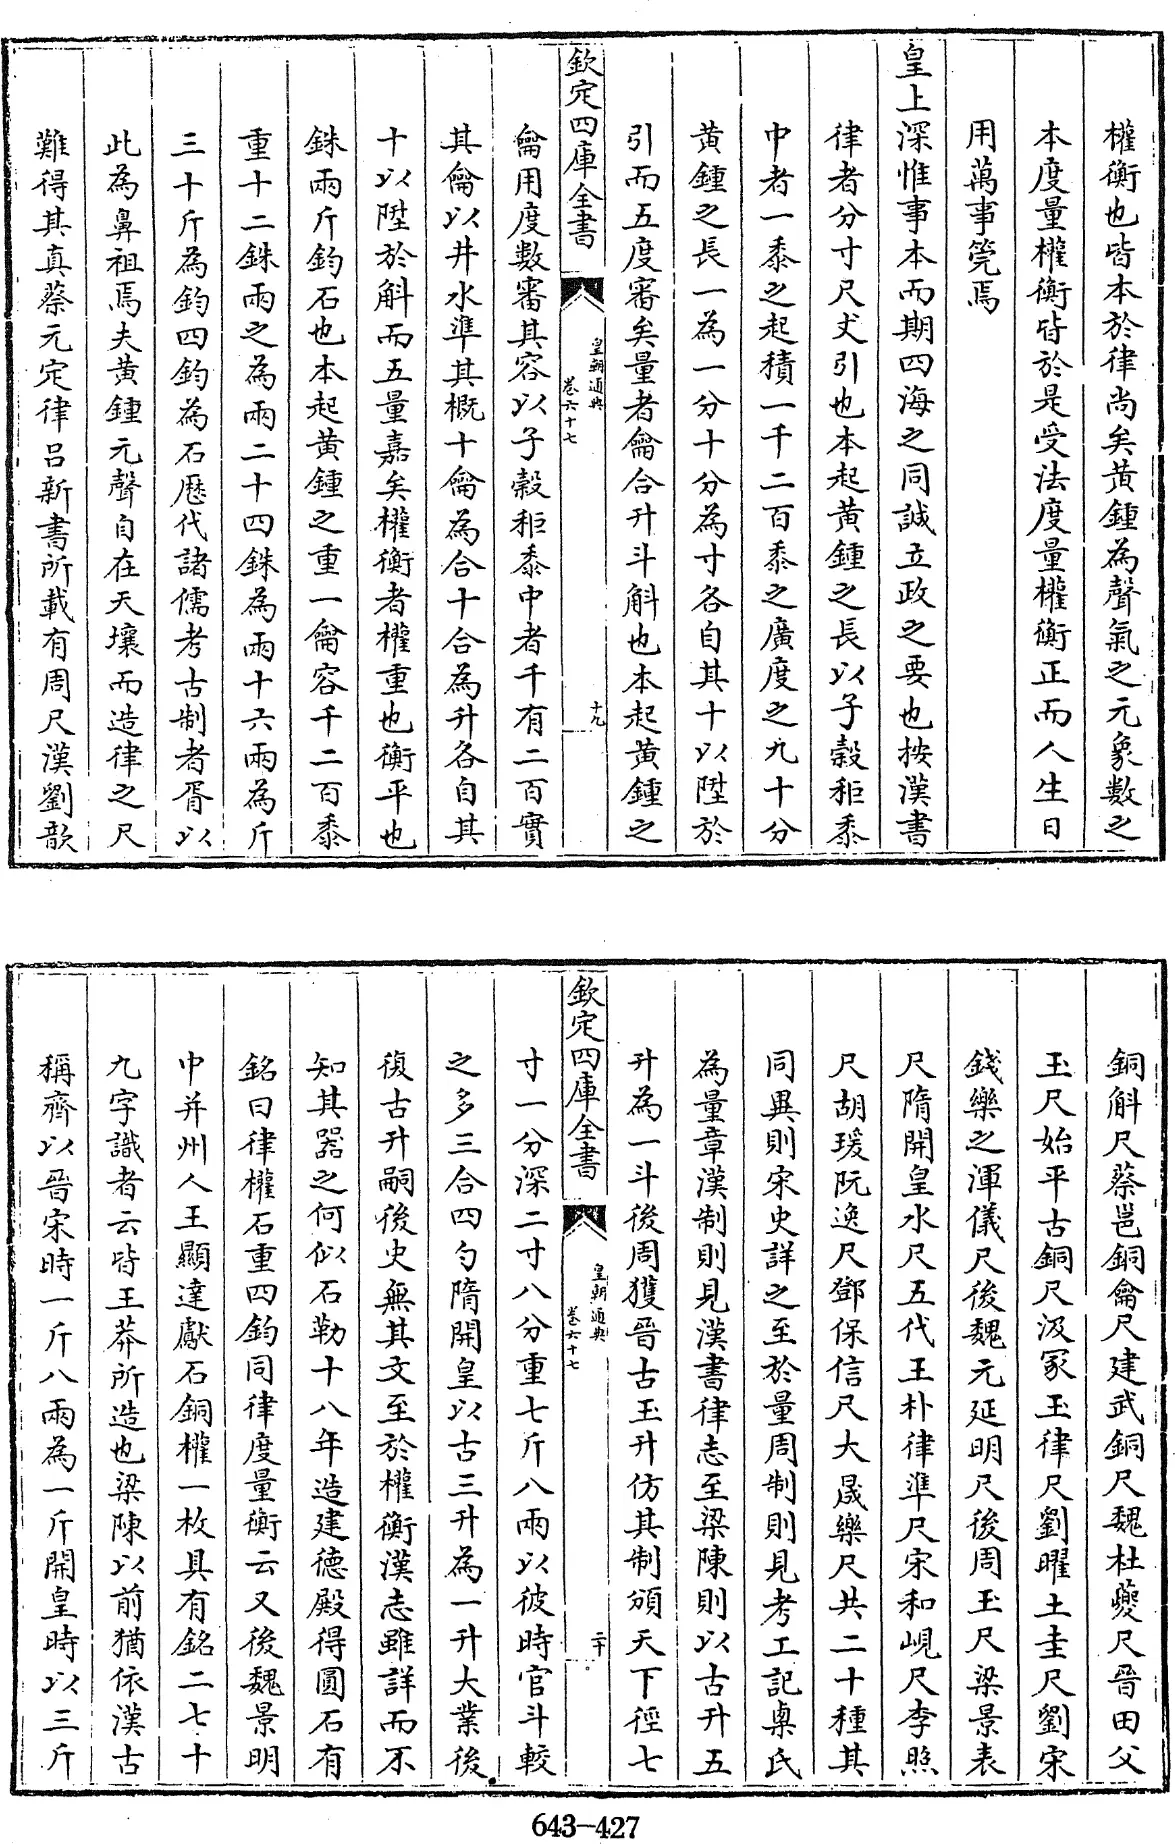 權衡也皆本於律尚矣黃鍾為聲氣之元象數之
本度量權衡皆於是受法度量權衡正而人生日
用萬事筦焉
皇上深惟事本而期四海之同誠立政之要也按漢書
律者分寸尺丈引也本起黃鍾之長以子穀秬黍
中者一黍之起積一千二百黍之廣度之九十分
黃鍾之長一為一分十分為寸各自其十以陞於
引而五度審矣量者龠合升斗斛也本起黃鍾之
欽定四庫全書
皇朝通典
卷六十七
十九
龠用度數審其容以子穀秬黍中者千有二百實
其龠以井水準其概十龠為合十合為升各自其
十以陞於斛而五量嘉矣權衡者權重也衡平也
銖兩斤鈞石也本起黃鍾之重一龠容千二百黍
重十二銖兩之為兩二十四銖為兩十六兩為斤
三十斤為鈞四鈞為石歷代諸儒考古制者胥以
此為鼻祖焉夫黃鍾元聲自在天壤而造律之尺
難得其真蔡元定律呂新書所載有周尺漢劉歆
銅斛尺蔡邕銅龠尺建武銅尺魏杜夔尺晉田父
玉尺始平古銅尺汲冢玉律尺劉曜土圭尺劉宋
錢樂之渾儀尺後魏元延明尺後周玉尺梁景表
尺隋開皇水尺五代王朴律準尺宋和峴尺李照
尺胡瑗阮逸尺鄧保信尺大晟樂尺共二十種其
同異則宋史詳之至於量周制則見考工記㮚氏
為量章漢制則見漢書律志至梁陳則以古升五
升為一斗後周獲晉古玉升仿其制頒天下徑七
欽定四庫全書
皇朝通典
卷六十七
二十
寸一分深二寸八分重七斤八兩以彼時官斗較
之多三合四勺隋開皇以古三升為一升大業後
復古升嗣後史無其文至於權衡漢志雖詳而不
知其器之何似石勒十八年造建德殿得圓石有
銘曰律權石重四鈞同律度量衡云又後魏景明
中并州人王顯達獻石銅權一枚具有銘二七十
九字識者云皆王莽所造也梁陳以前猶依漢古
稱齊以晉宋時一斤八兩為一斤開皇時以三斤
643-427